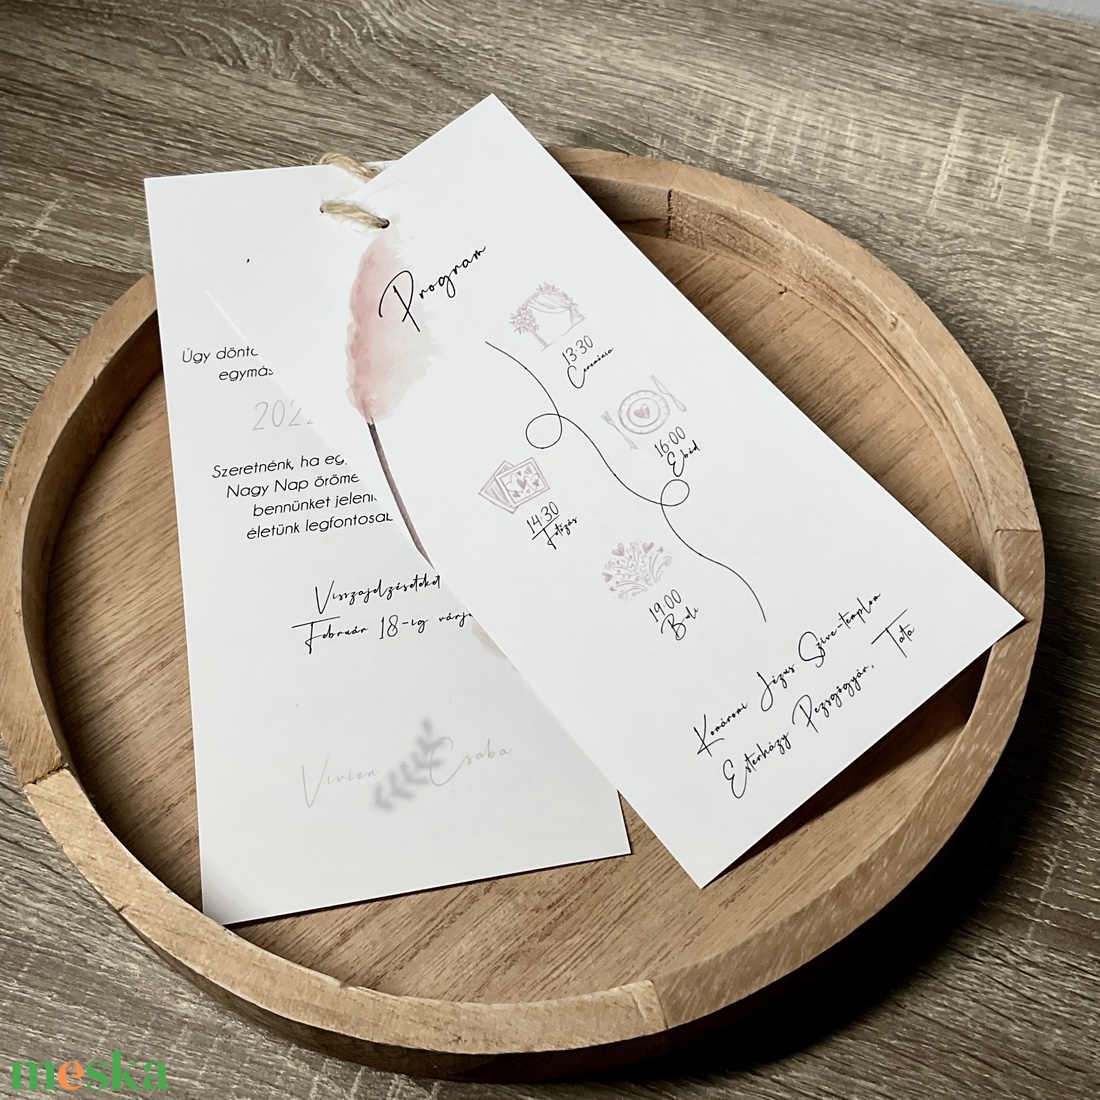 Úgy dönt
egymás
202
Szeretnénk, ha eg
Nagy Nap öröme
bennünket jelen
életünk legfontosab
Visszajelzéseteket
Február 18-ig várj
Vivien Csaba
Program
13:30
Ceremónia
16:00
Ebéd
14:30
Fotózás
19:00
Buli
Komáromi Jézus Szíve-templom
Esterházy Pezsgőgyár, Tata
meska